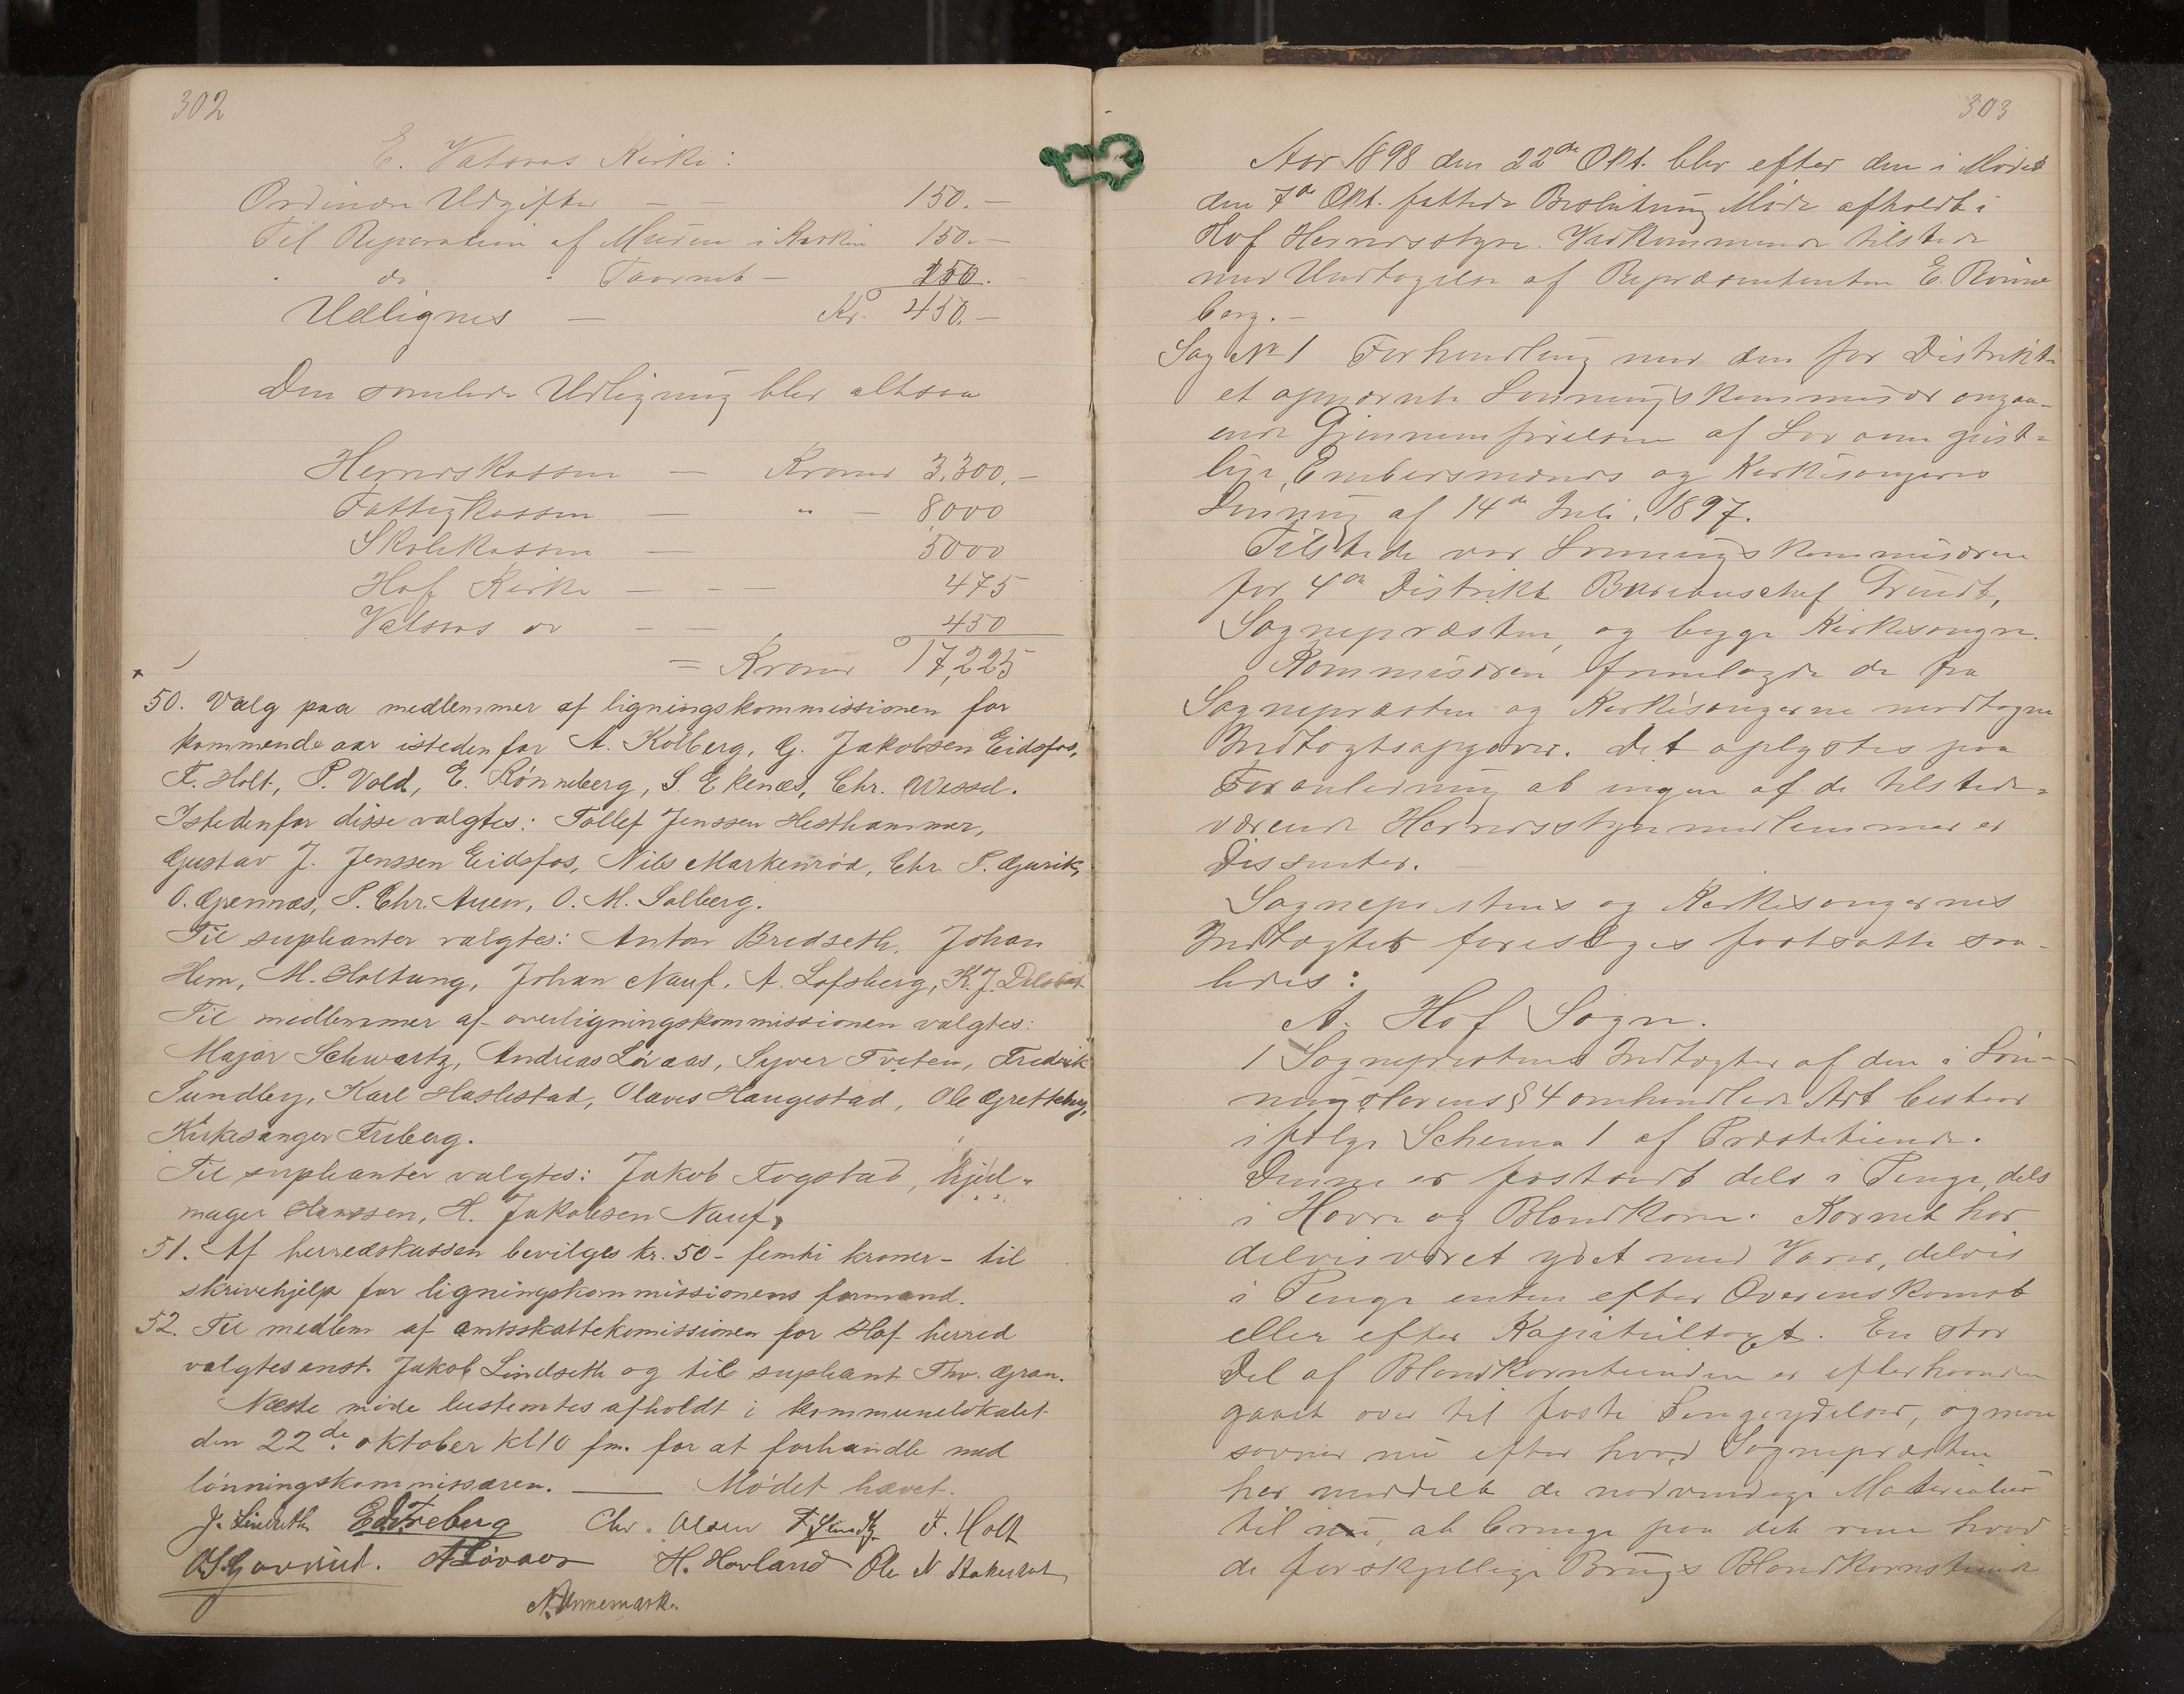 302
E. Vatsaas Kirke:
Ordinære Udgifter — — 150.—
Til Reparation af Muren i Kirken 150.—
" do " Taarnet — 150.
Udlignes — Kr. 450.—
Den samlede Udligning blev altsaa
Herredskassen — Kroner 3.300.—
Fattigkassen — " — 8,000
Skolekassen — 5000
Hof Kirke — — — 475
Vatsaas do — — 450
= Kroner 17,225
50. Valg paa medlemmer af ligningskommissionen for
kommende aar istedenfor A. Kolberg, G. Jakobsen Eidsfos,
F. Holt, P. Vold, E. Rønneberg, S. Ekenæs, Chr. Wessel.
Istedenfor disse valgtes: Tollef Jenssen Hesthammer,
Gustav J. Jenssen Eidsfos, Nils Markenrød, Chr. P. Gjurik,
O. Grennæs, P. Chr. Auen, O. M. Solberg.
Til supleanter valgtes: Anton Bredseth, Johan
Hem, M. Holtung, Johan Nauf, A. Lofsberg, K. J.
Til medlemmer af overligningskommissionen valgtes:
Major Schwartz, Andreas Løvaas, Syver Tveten, Fredrik
Sundby, Karl Haslestad, Olaves Haugestad, Ole Gretteberg,
Kirkesanger Friberg.
Til supleanter valgtes: Jakob Fogstad, hjul-
mager Hanssen, H. Jakobsen Nauf.
51. Af herredskassen bevilges kr. 50 - femti kroner - til
skrivehjelp for ligningskommissionens formand.
52. Til medlem af amtsskattekomissionen for Hof herred
valgtes enst. Jakob Lindseth og til supleant Thv. Gran.
Næste møde bestemtes afholdt i kommunelokalet
den 22de oktober kl 10 fm. for at forhandle med
lønningskommissæren. — Mødet hævet.
J. Lindseth Edv. Freberg Chr. Olsen F. Sundby F. Holt
A Løvaas H. Hovland Ole N
A. Unnemark.
303
Aar 1898 den 22de Okt. blev efter den i Mødet
den 7de Okt. fattede Beslutning Møde afholdt i
Hof Herredsstyre. Vedkommende tilstede
med Undtagelse af Repræsentanten E. Rønne
berg. —
Sag No 1 Forhandling med den for Distrikt-
et opnævnte Lønningskommisær angaa-
ende Gjennemførelsen af Lov om geist-
lige Embedsmænds og Kirkesangeres
Lønning af 14de Juli 1897.
Tilstede var Lønningskommisæren
for 4de Distrikt Bureauchef Trundt,
Sognepræsten, og begge Kirkesangere.
Kommisæren fremlagde de fra
Sognepræsten og Kirkesangerne modtagne
Indtægtsopgaver. Det oplystes paa
Foranledning at ingen af de tilstede-
værende Herredsstyremedlemmer er
Dissenter. —
Sognepræstens og Kirkesangernes
Indtægter foreslages fastsatte saa-
ledes:
A. Hof Sogn.
1 Sognepræstens Indtægter af den i Løn-
ningslovens § 4 omhandlede Art bestaar
ifølge Schema 1 af Præstetiende.
Denne er fastsat dels i Penge, dels
i Havre og Blandkorn. Kornet har
delvis været ydet med Varer, delvis
i Penge enten efter Overenskomst
eller efter Kapiteltaxt. En stor
Del af Blandkorntienden er efterhaanden
gaaet over til faste Pengeydelser, og man
savner nu efter hvad Sognepræsten
har meddelt de nødvendige Materialier
til at bringe paa det rene hvad
de forskjellige Brugs Blandkornstiende